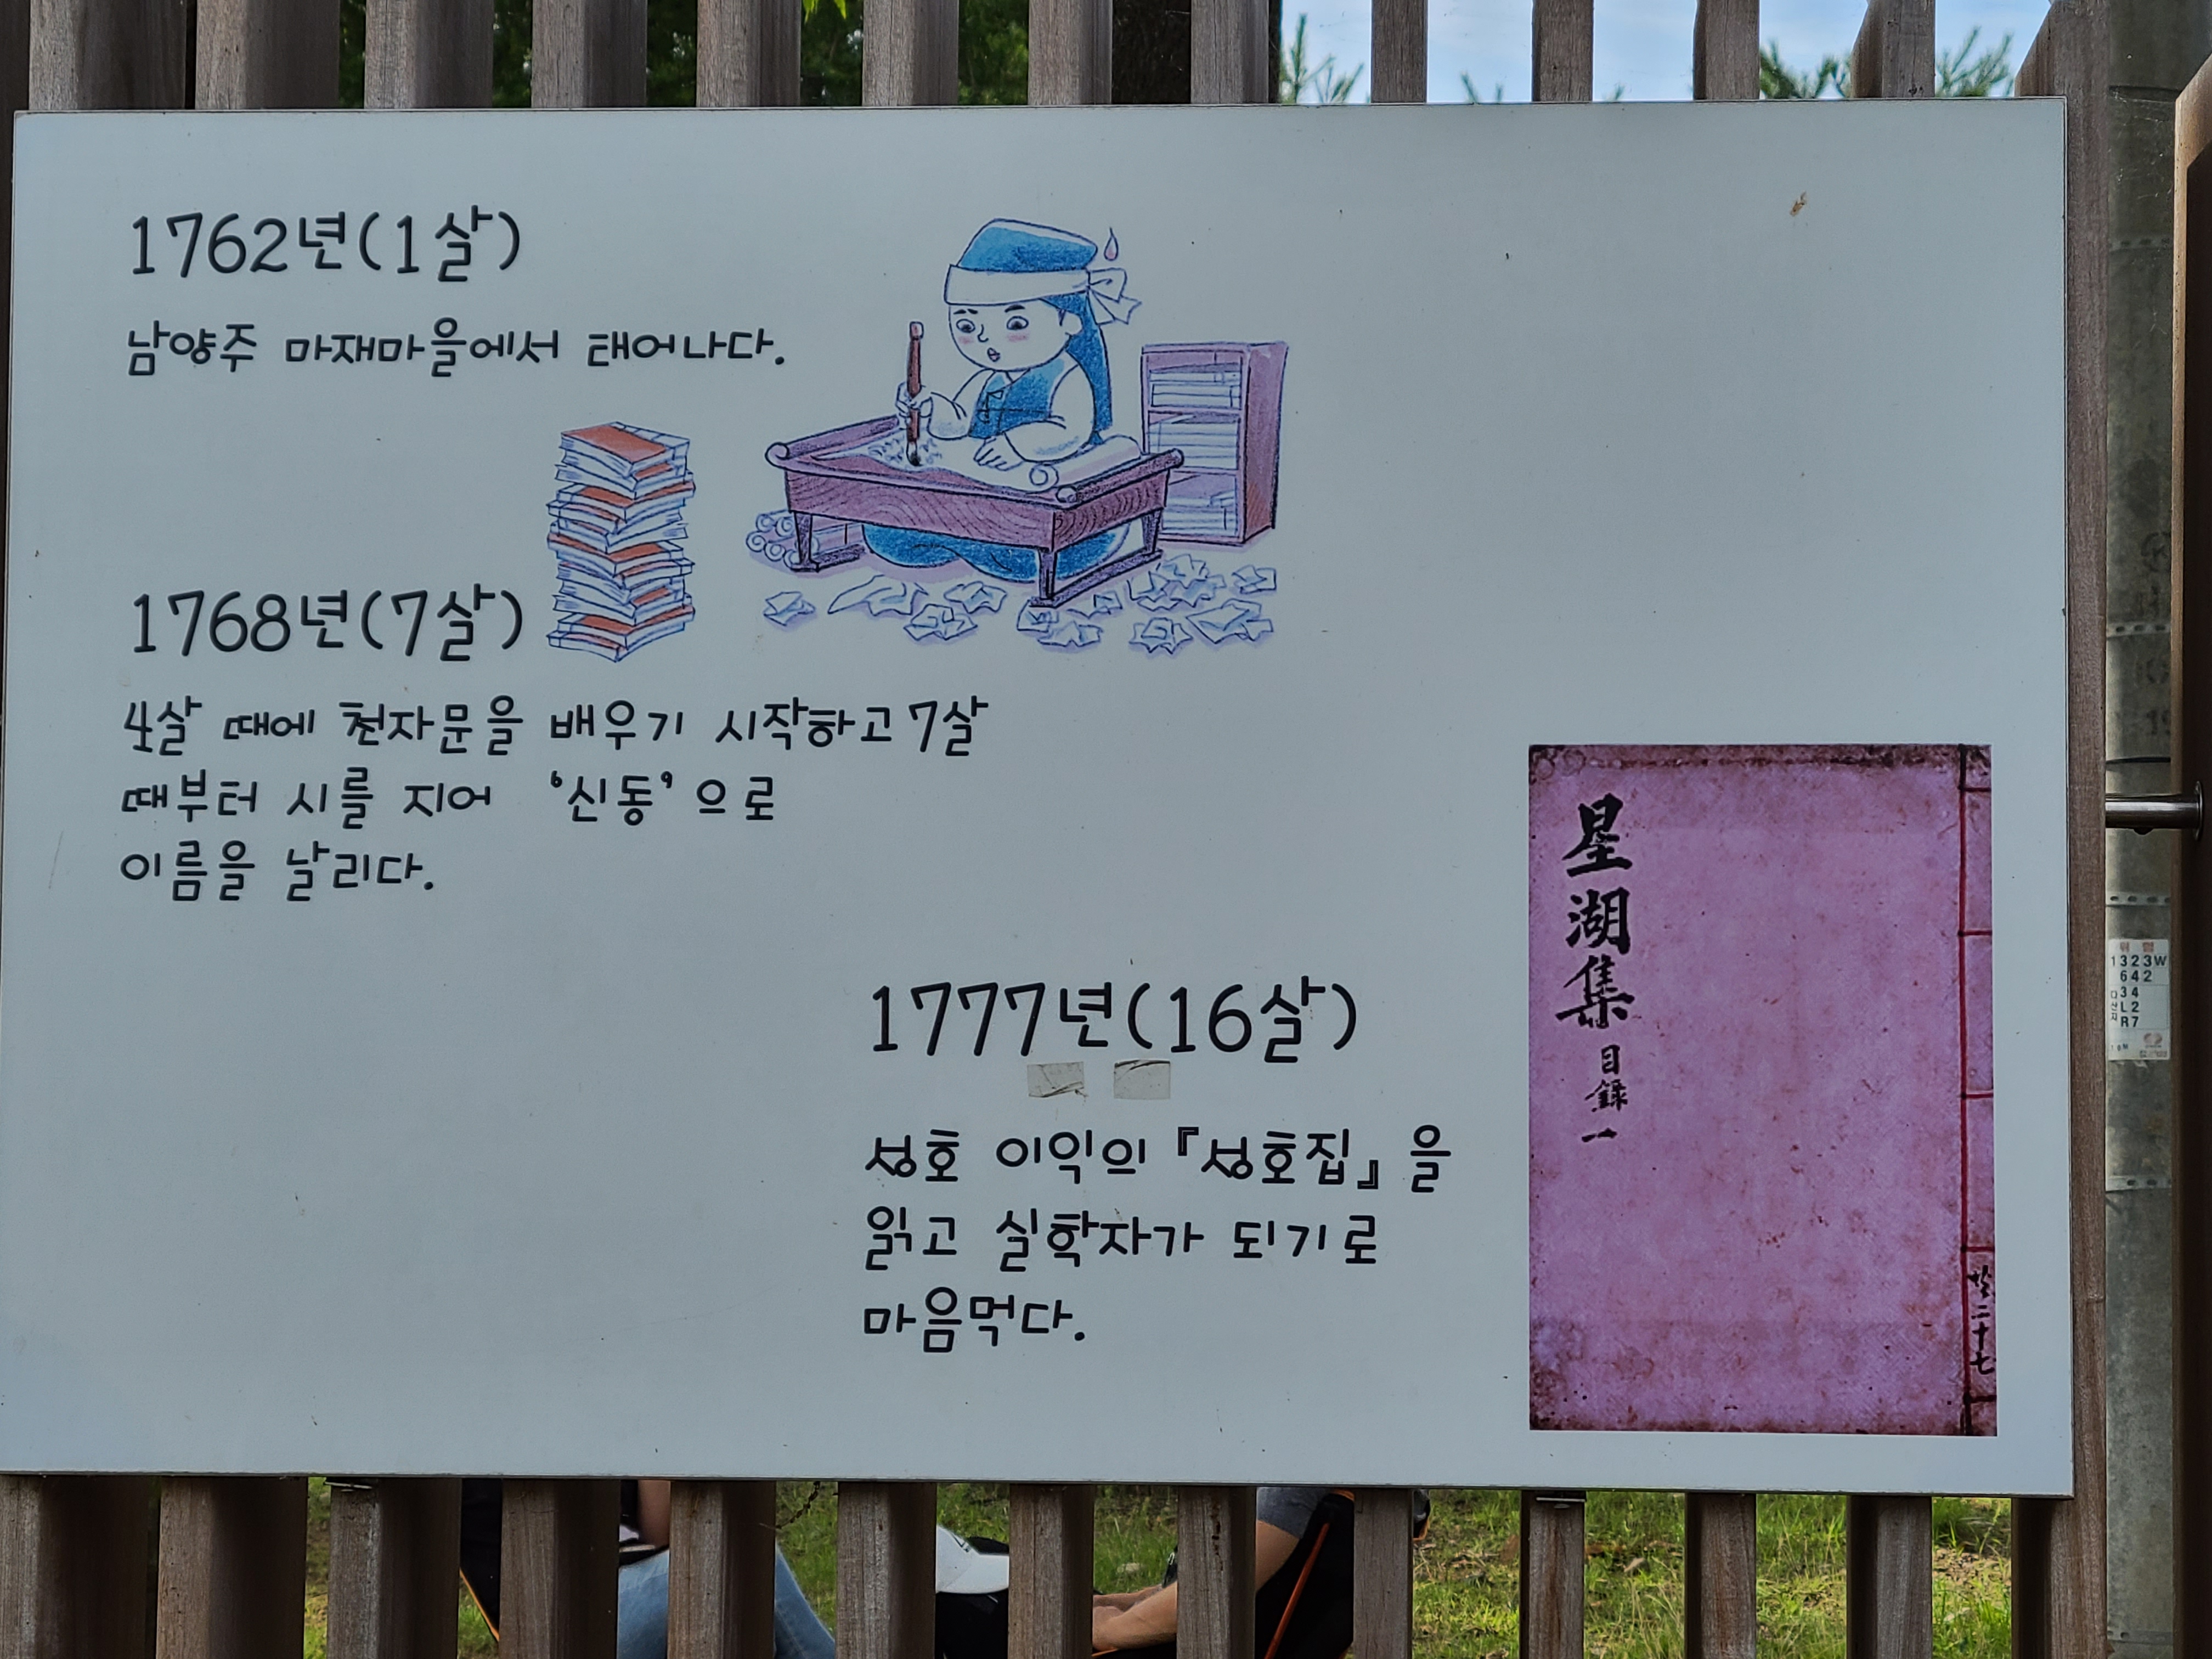 1762년(1살)
남양주 마재마을에서 태어나다.
1768년(7살)
4살 때에 천자문을 배우기 시작하고 7살
때부터 시를 지어 '신동'으로
이름을 날리다.
1777년(16살)
성호 이익의 『성호집』을
읽고 실학자가 되기로
마음먹다.
星湖集 目錄 一
共二十七
위험
1323W
642
34
L2
R7